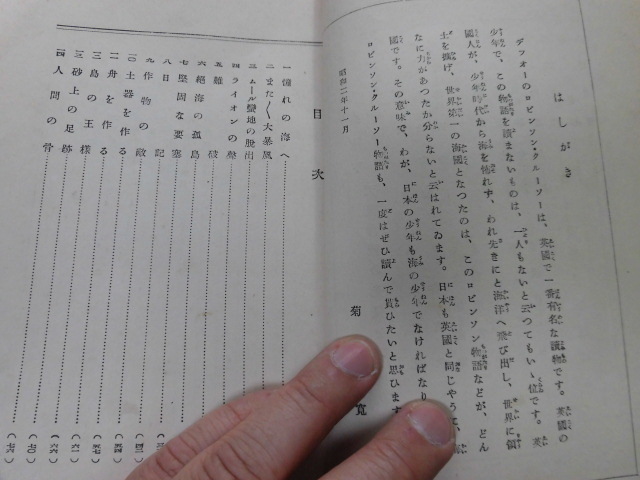 はしがき
デフォーのロビンソン・クルーソーは、英國で一番有名な讀物です。英國の
少年で、この物語を讀まないものは、一人もないと云つてもいゝ位です。英
國人が、少年時代から海を怖れず、われ先きにと海洋へ飛び出し、世界に領
土を擴げ、世界第一の海國となつたのは、このロビンソン物語などが、どん
なに力があつたか分らないと云はれてゐます。日本も英國と同じやうに、
國です。その意味で、わが、日本の少年も海の少年でなければなり
ロビンソン・クルーソー物語も、一度はぜひ讀んで貰ひたいと思ひます
昭和二年十一月
菊 寬
目次
一 憧れの海へ
二 また〳〵大暴風
三 ムール蠻地の脫出
四 ライオンの聲
五 難破
六 絕海の孤島
七 堅固な要塞
八 日記
九 作物の敵
一〇 土器を作る
一一 舟を作る
一二 島の王樣
一三 砂上の足跡
一四 人間の骨